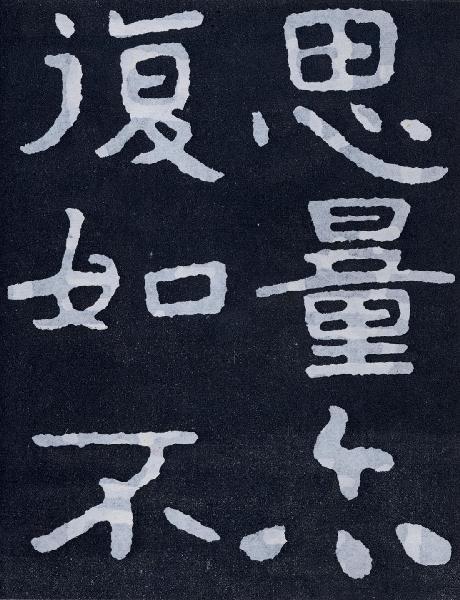 思量亦
復如不